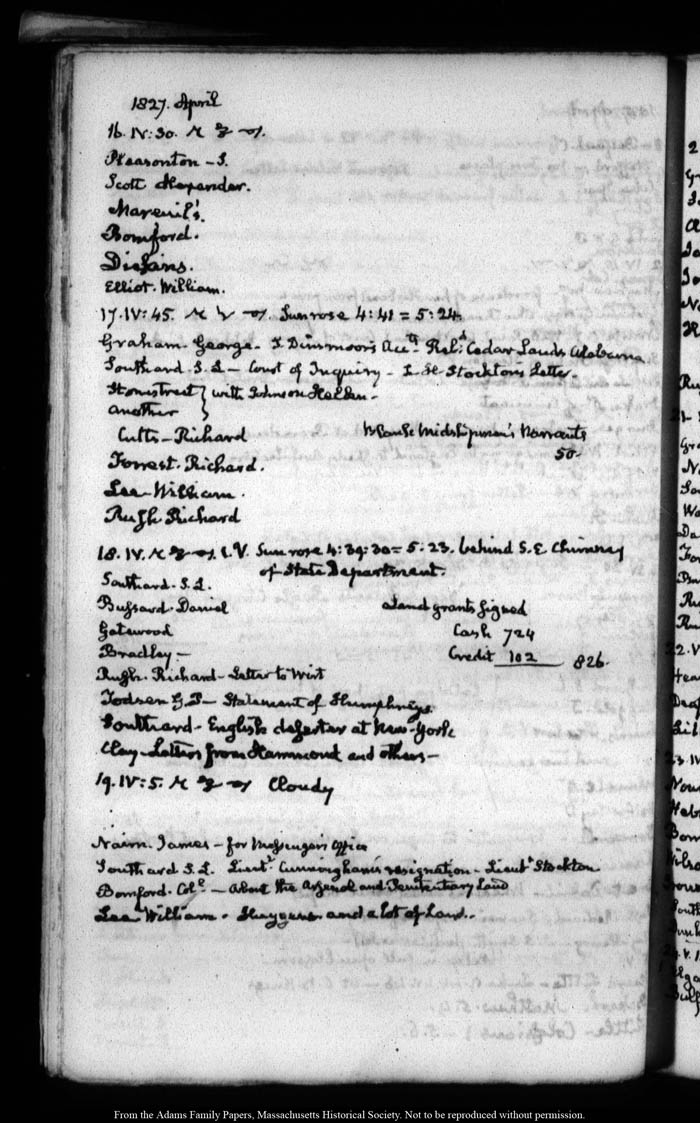 1827. April
16. IV:30.
Pleasonton - S.
Scott Alexander.
Mareuil's.
Bomford.
Dickins.
Elliot. William.
17. IV:45. Sun rose 4:41 = 5:24.
Graham. George. I Dinsmoor's Acct. Reld. Cedar Lands Alabama
Southard. S. L - Court of Inquiry - Stockton's Letter.
Stonestreet } with Johnson Hellen.
another }
Cutts - Richard Blank Midshipmen's Warrants
50.
Forrest. Richard.
Lee William.
Rush Richard
18. IV. V. Sun rose 4:39:30 = 5:23. behind S.E Chimney
of State Department.
Southard. S. L.
Bussard. Daniel Land grants signed
Gatewood Cash 724
Bradley - Credit 102 826.
Rush. Richard - Letter to Wirt
Todsen G. P - Statement of Humphreys.
Southard - English deserter at New-York
Clay - Letters from Hammond and others -
19. IV:5. Cloudy
Nairn. James - for Messengers Office
Southard S. L. Lieutt. Cunningham's resignation - Lieutt Stockton
Bomford. Coll. - About the Arsenal and Penitentiary Land
Lee William. and a lot of Land.
From the Adams Family Papers, Massachusetts Historical Society. Not to be reproduced without permission.